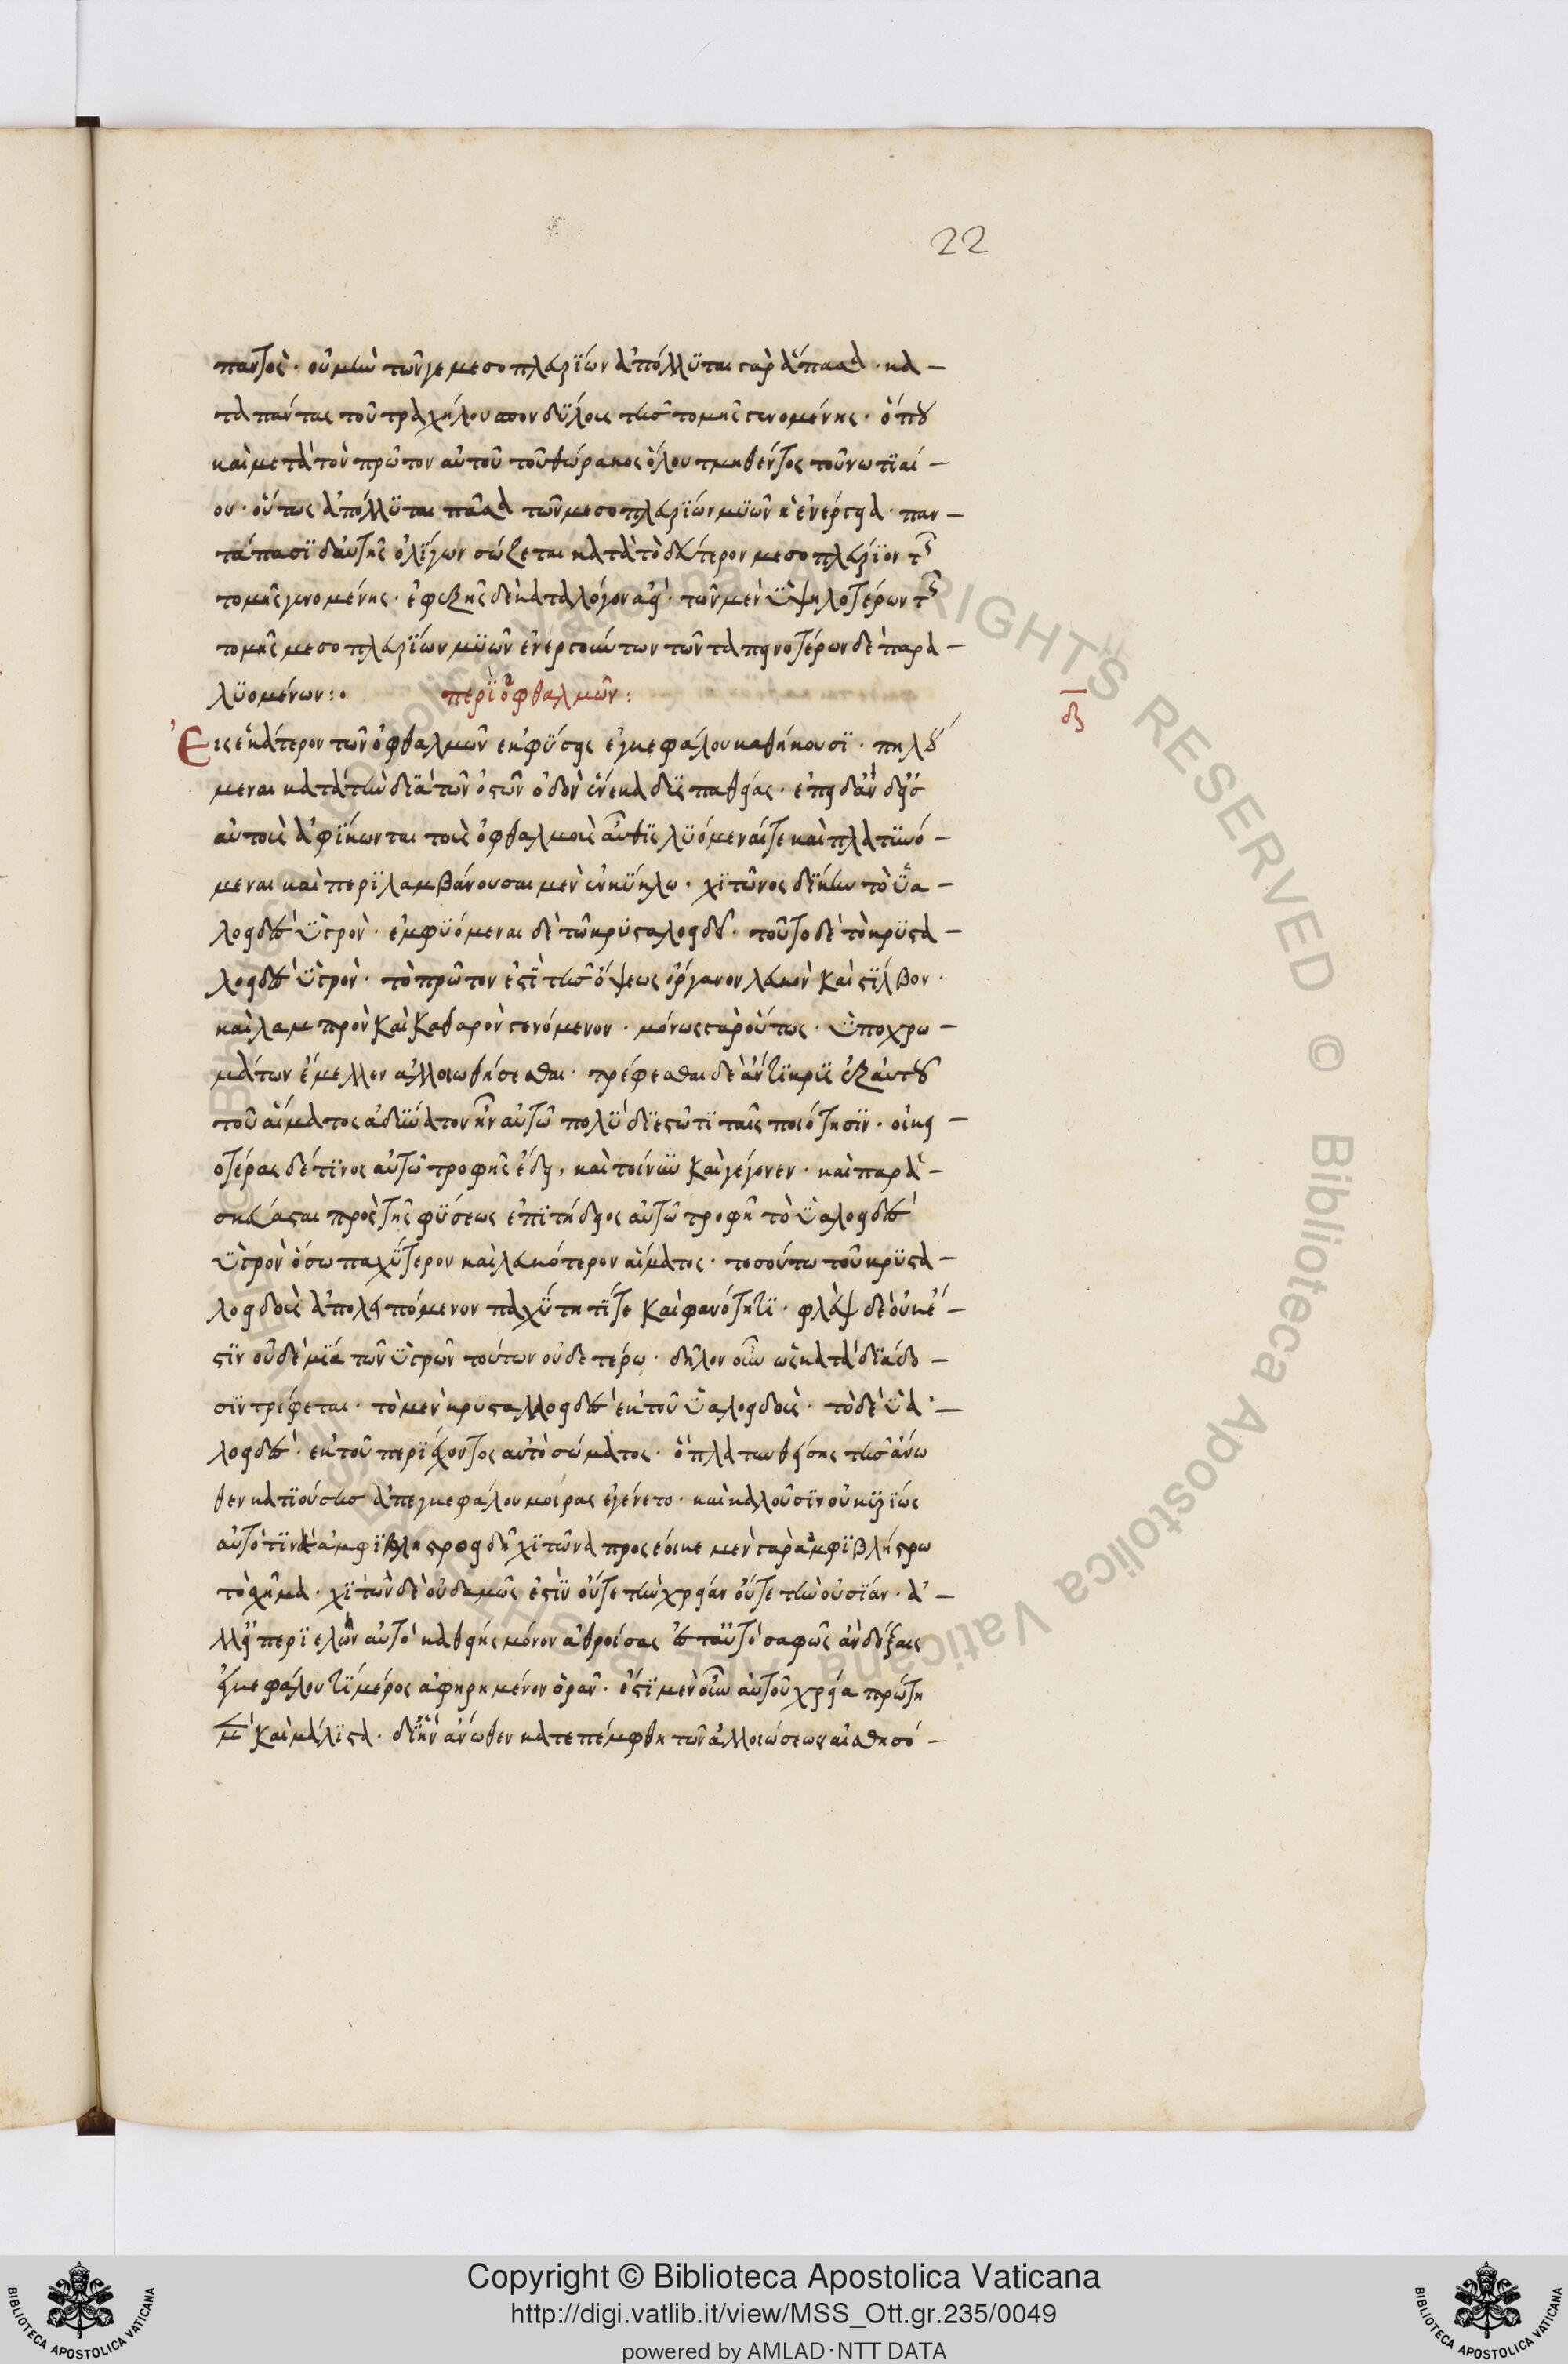 22
παντὸς· οὐ μὴν τῶν γε μεσοπλευρΐων ἀπόλλϋται γὰρ ἅπασα· κα –
τὰ πάντας τοῦ τραχήλου σπονδΰλους τῆς τομῆς γενομένης· ὅπου
καὶ μετὰ τὸν πρῶτον αὐτοῦ τοῦ θώρακος ὅλου τμηθέντος τοῦ νωτϊαί –
ου· οὕτως ἀπόλλϋται πᾶσα τῶν μεσοπλευρΐων μϋῶν ἡ ἐνέργεια· παν –
τάπασϊ δ' αὐτῆς ὀλΐγων σώζεται κατὰ τὸ δεύτερον μεσοπλεύρϊον τῆς
τομῆς γινομένης· ἐφεξῆς δὲ κατὰ λόγον ἀεὶ· τῶν μὲν ὑψηλοτέρων τῆς
τομῆς μεσοπλευρΐων μϋῶν ἐνεργούντων τῶν ταπεινοτέρων δὲ παρα –
λϋομένων:·
περὶ ὀφθαλμῶν:
δ
Εἰς ἑκάτερον τῶν ὀφθαλμῶν ἐκφύσεις ἐγκεφάλου καθήκουσϊ· πηλού
μεναι κατὰ τὴν διὰ τῶν ὀστῶν ὁδὸν ἕνεκα δϋσπαθείας· ἐπειδὰν δ' εἰς
αὐτοὺς ἀφΐκωνται τοὺς ὀφθαλμοὺς αὖθϊς λϋόμεναί τε καὶ πλατϋνό –
μεναι καὶ περϊλαμβάνουσαι μὲν ἐν κΰκλω· χϊτῶνος δΐκην τὸ ὑα –
λοειδὲς ὑγρὸν· ἐμφυόμεναι δὲ τῶ κρϋσταλοειδεῖ· τοῦτο δὲ τὸ κρϋστα –
λοειδὲς ὑγρὸν· τὸ πρῶτον ἐστὶ τῆς ὄψεως ὄργανον λευκὸν καὶ στΐλβον·
καὶ λαμπρὸν καὶ καθαρὸν γενόμενον· μόνως γὰρ οὕτως· ὑπὸ χρω –
μάτων ἔμελλεν ἀλλοιωθήσεσθαι· τρέφεσθαι δὲ ἄντϊκρϋς ἐξ αὐτοῦ
τοῦ αἵματος ἀδϋνατον ἦν αὐτῶ πολὺ διεστῶτϊ ταῖς ποιότησϊν· οἰκει –
οτέρας δέ τϊνος αὐτῶ τροφῆς ἔδει, καὶ τοίνϋν καὶ γέγονεν· καὶ παρε –
σκεύασται πρὸς τῆς φΰσεως ἐπϊτήδειος αὐτῶ τροφὴ τὸ ὑαλοειδὲς
ὑγρὸν ὅσω παχΰτερον καὶ λευκότερον αἵματος· τοσούτω τοῦ κρϋστα –
λοειδοῦς ἀπολειπόμενον παχΰτητΐ τε καὶ φανότητϊ· φλὲψ δὲ οὐκ ἔ –
στϊν οὐδὲ μΐα τῶν ὑγρῶν τούτων οὐδετέρω· δῆλον οὖν ὡς κατὰ διάδο –
σϊν τρέφεται· τὸ μὲν κρϋσταλλοειδὲς ἐκ τοῦ ὑαλοειδοῦς· τὸ δὲ ὑα –
λοειδὲς· ἐκ τοῦ περϊέχοντος αὐτὸ σώματος· ὃ πλατυνθείσης τῆς ἄνω
θεν κατϊούσης ἀπ' ἐγκεφάλου μοίρας ἐγένετο· καὶ καλοῦσϊν οὐ κϋρΐως
αὐτό τϊνες ἀμφϊβληστροειδῆ χϊτῶνα προσέοικε μὲν γὰρ ἀμφϊβλήστρω
τὸ σχῆμα· χϊτὼν δὲ οὐδαμῶς ἐστὶν οὔτε τὴν χρόαν οὔτε τὴν οὐσΐαν· ἀ –
λλ' εἰ περϊελὼν αὐτὸ καθ' εἷς μόνον ἀθροίσας ἐς ταὐτὸ σαφῶς ἂν δόξαις
ἐγκεφάλου τϊ μέρος ἀφῃρημένον ὁρᾶν· ἔστι μὲν οὖν αὐτοῦ χρεία πρώτη
μὲν καὶ μάλϊστα· δϊ' ἣν ἄνωθεν κατεπέμφθη τῶν ἀλλοιώσεως αἰσθησό –
Copyright © Biblioteca Apostolica Vaticana
http://digi.vatlib.it/view/MSS_Ott.gr.235/0049
powered by AMLAD·NTT DATA